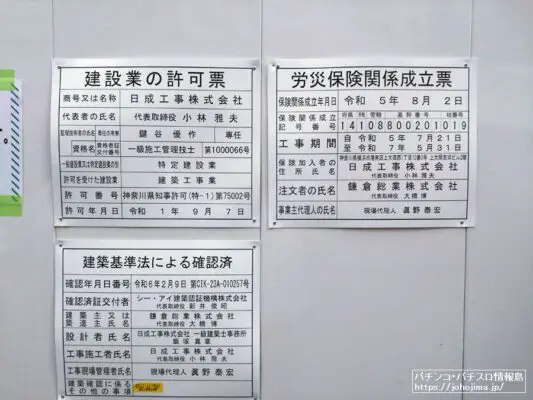 建設業の許可票
商号又は名称 日成工事株式会社
代表者の氏名 代表取締役 小林 雅夫
監理技術者の氏名 専任の有無 鍵谷 優作 専任
資格名 資格者証交付番号 一級施工管理技士 第1000066号
一般建設業又は特定建設業の別 特定建設業
許可を受けた建設業 建築工事業
許可番号 神奈川県知事許可(特-1)第75002号
許可年月日 令和 1年 9月 7日
労災保険関係成立票
保険関係成立年月日 令和 5年 8月 2日
保険関係成立記号番号 府県 所掌 管轄 基幹番号 枝番号
14108800201019
工事期間 自 令和 5年 7月21日
至 令和 7年 5月31日
保険加入者の住所氏名
日成工事株式会社
代表取締役 小林雅夫
注文者の氏名 鎌倉総業株式会社
代表取締役 大橋 博
事業主代理人の氏名 現場代理人 眞野泰宏
建築基準法による確認済
確認年月日番号 令和6年2月9日 第CIK-23A-010257号
確認済証交付者 シー・アイ建築認証機構株式会社
代表取締役 新井 俊昭
建築主又は築造主氏名 鎌倉総業株式会社
代表取締役 大橋 博
設計者氏名 日成工事株式会社 一級建築士事務所
飯塚 真章
工事施工者氏名 日成工事株式会社
代表取締役 小林 雅夫
工事現場管理者氏名 現場代理人 眞野泰宏
建築確認に係るその他の事項
パチンコ・パチスロ情報島
https://johojima.jp/